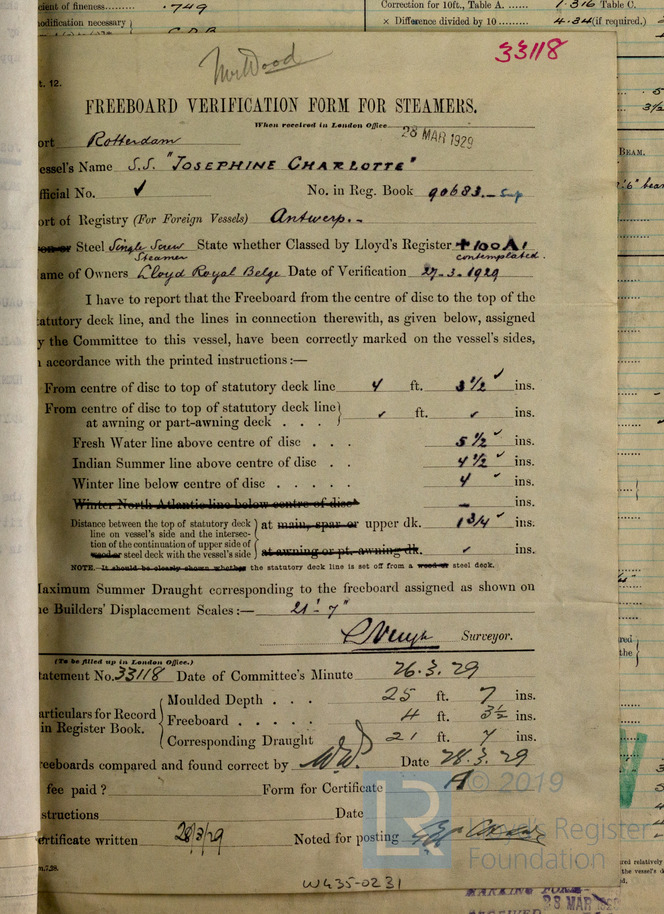 cient of fineness......... .749
modification necessary
C.D.B
Correction for 10ft., Table A. ...... 1.316 Table C.
× Difference divided by 10 ...... 4.34 (if required.)
33118
Mr Wood
t. 12.
FREEBOARD VERIFICATION FORM FOR STEAMERS.
When received in London Office 28 MAR 1929
ort Rotterdam
essel's Name S.S. "JOSEPHINE CHARLOTTE"
fficial No. ✓ No. in Reg. Book 90683 - Sup
ort of Registry (For Foreign Vessels) Antwerp.-
Steel Single Screw Steamer State whether Classed by Lloyd's Register +100A1 contemplated.
ame of Owners Lloyd Royal Belge Date of Verification 27-3-1929
I have to report that the Freeboard from the centre of disc to the top of the
tatutory deck line, and the lines in connection therewith, as given below, assigned
y the Committee to this vessel, have been correctly marked on the vessel's sides,
n accordance with the printed instructions:—
From centre of disc to top of statutory deck line 4 ft. 3 1/2 ✓ ins.
From centre of disc to top of statutory deck line
at awning or part-awning deck . . . ✓ ft. ✓ ins.
Fresh Water line above centre of disc . . . 5 1/2 ✓ ins.
Indian Summer line above centre of disc . . 4 1/2 ✓ ins.
Winter line below centre of disc . . . . . 4 ✓ ins.
Winter North Atlantic line below centre of disc - ins.
Distance between the top of statutory deck
line on vessel's side and the intersec-
tion of the continuation of upper side of
wood or steel deck with the vessel's side
at main, spar or upper dk. 1 3/4 ✓ ins.
at awning or pt. awning dk. ✓ ins.
NOTE.—It should be clearly shown whether the statutory deck line is set off from a wood or steel deck.
Maximum Summer Draught corresponding to the freeboard assigned as shown on
he Builders' Displacement Scales:— 21'-7"
Surveyor.
(To be filled up in London Office.)
tatement No. 33118 Date of Committee's Minute 26.3.29
articulars for Record
in Register Book.
Moulded Depth . . . 25 ft. 7 ins.
Freeboard . . . . . 4 ft. 3 1/2 ins.
Corresponding Draught 21 ft. 7 ins.
reeboards compared and found correct by WW Date 28.3.29
fee paid ? Form for Certificate A
structions Date
ertificate written 28/3/29 Noted for posting
© 2019
LR
Lloyd's Register
Foundation
m,7,28.
W435-0231
MARKING FORM
RECEIVED 28 MAR 1929
BEAM.